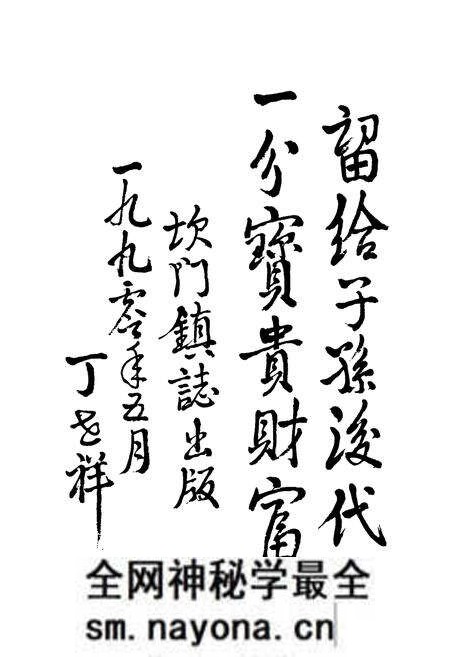 留给子孫後代
一分寶貴財富
坎門鎮誌出版
一九九零年五月
丁世祥
全网神秘学最全
sm.nayona.cn